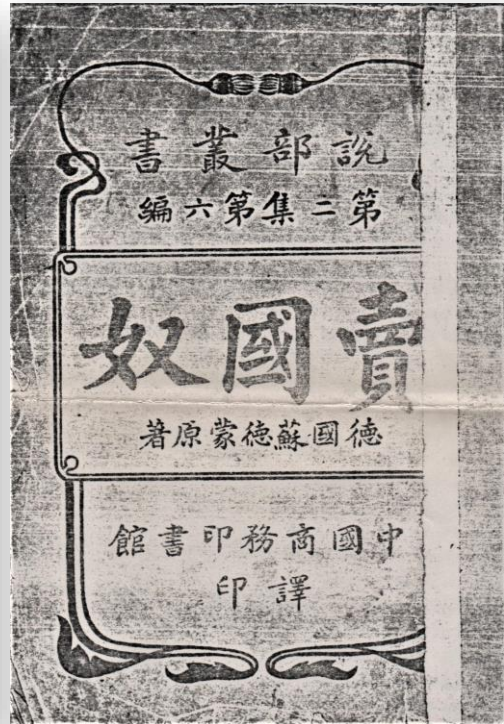 說部叢書
第二集第六編
賣國奴
德國蘇德蒙原著
中國商務印書館
譯印